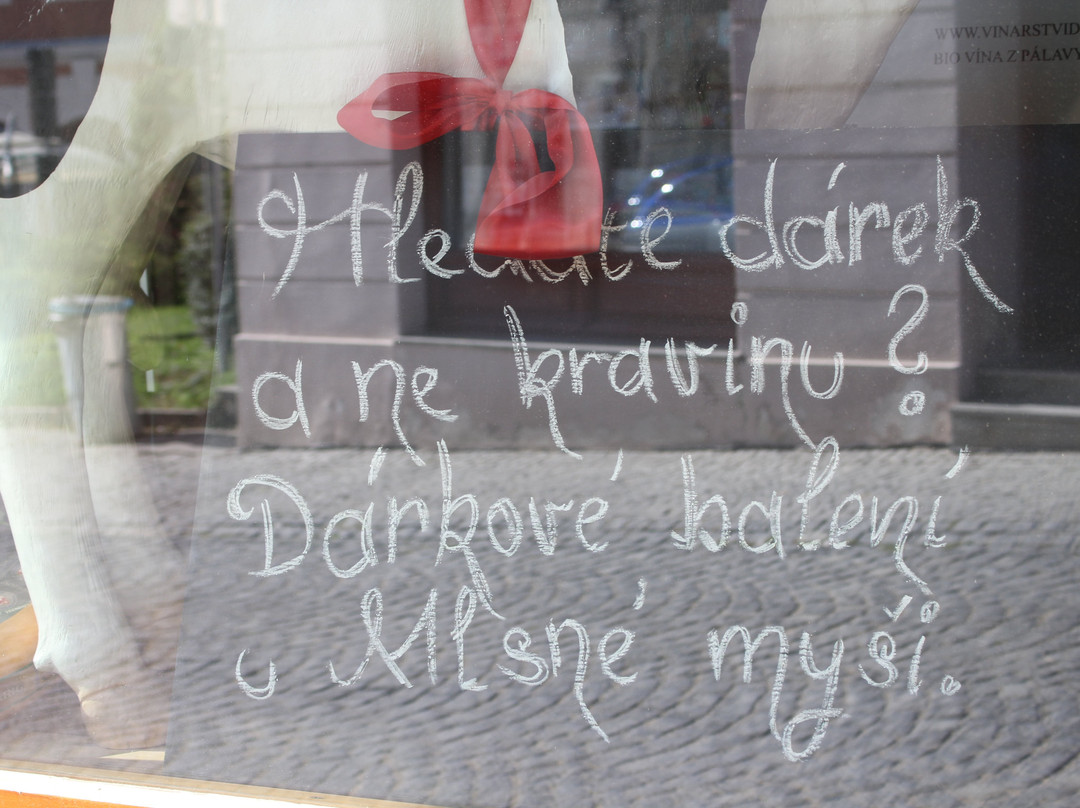 WWW.VINARSTVID
BIO VÍNA Z PÁLAVY
Hledáte dárek
a ne kravinu?
Dárkové balení
u Mlsné myši.